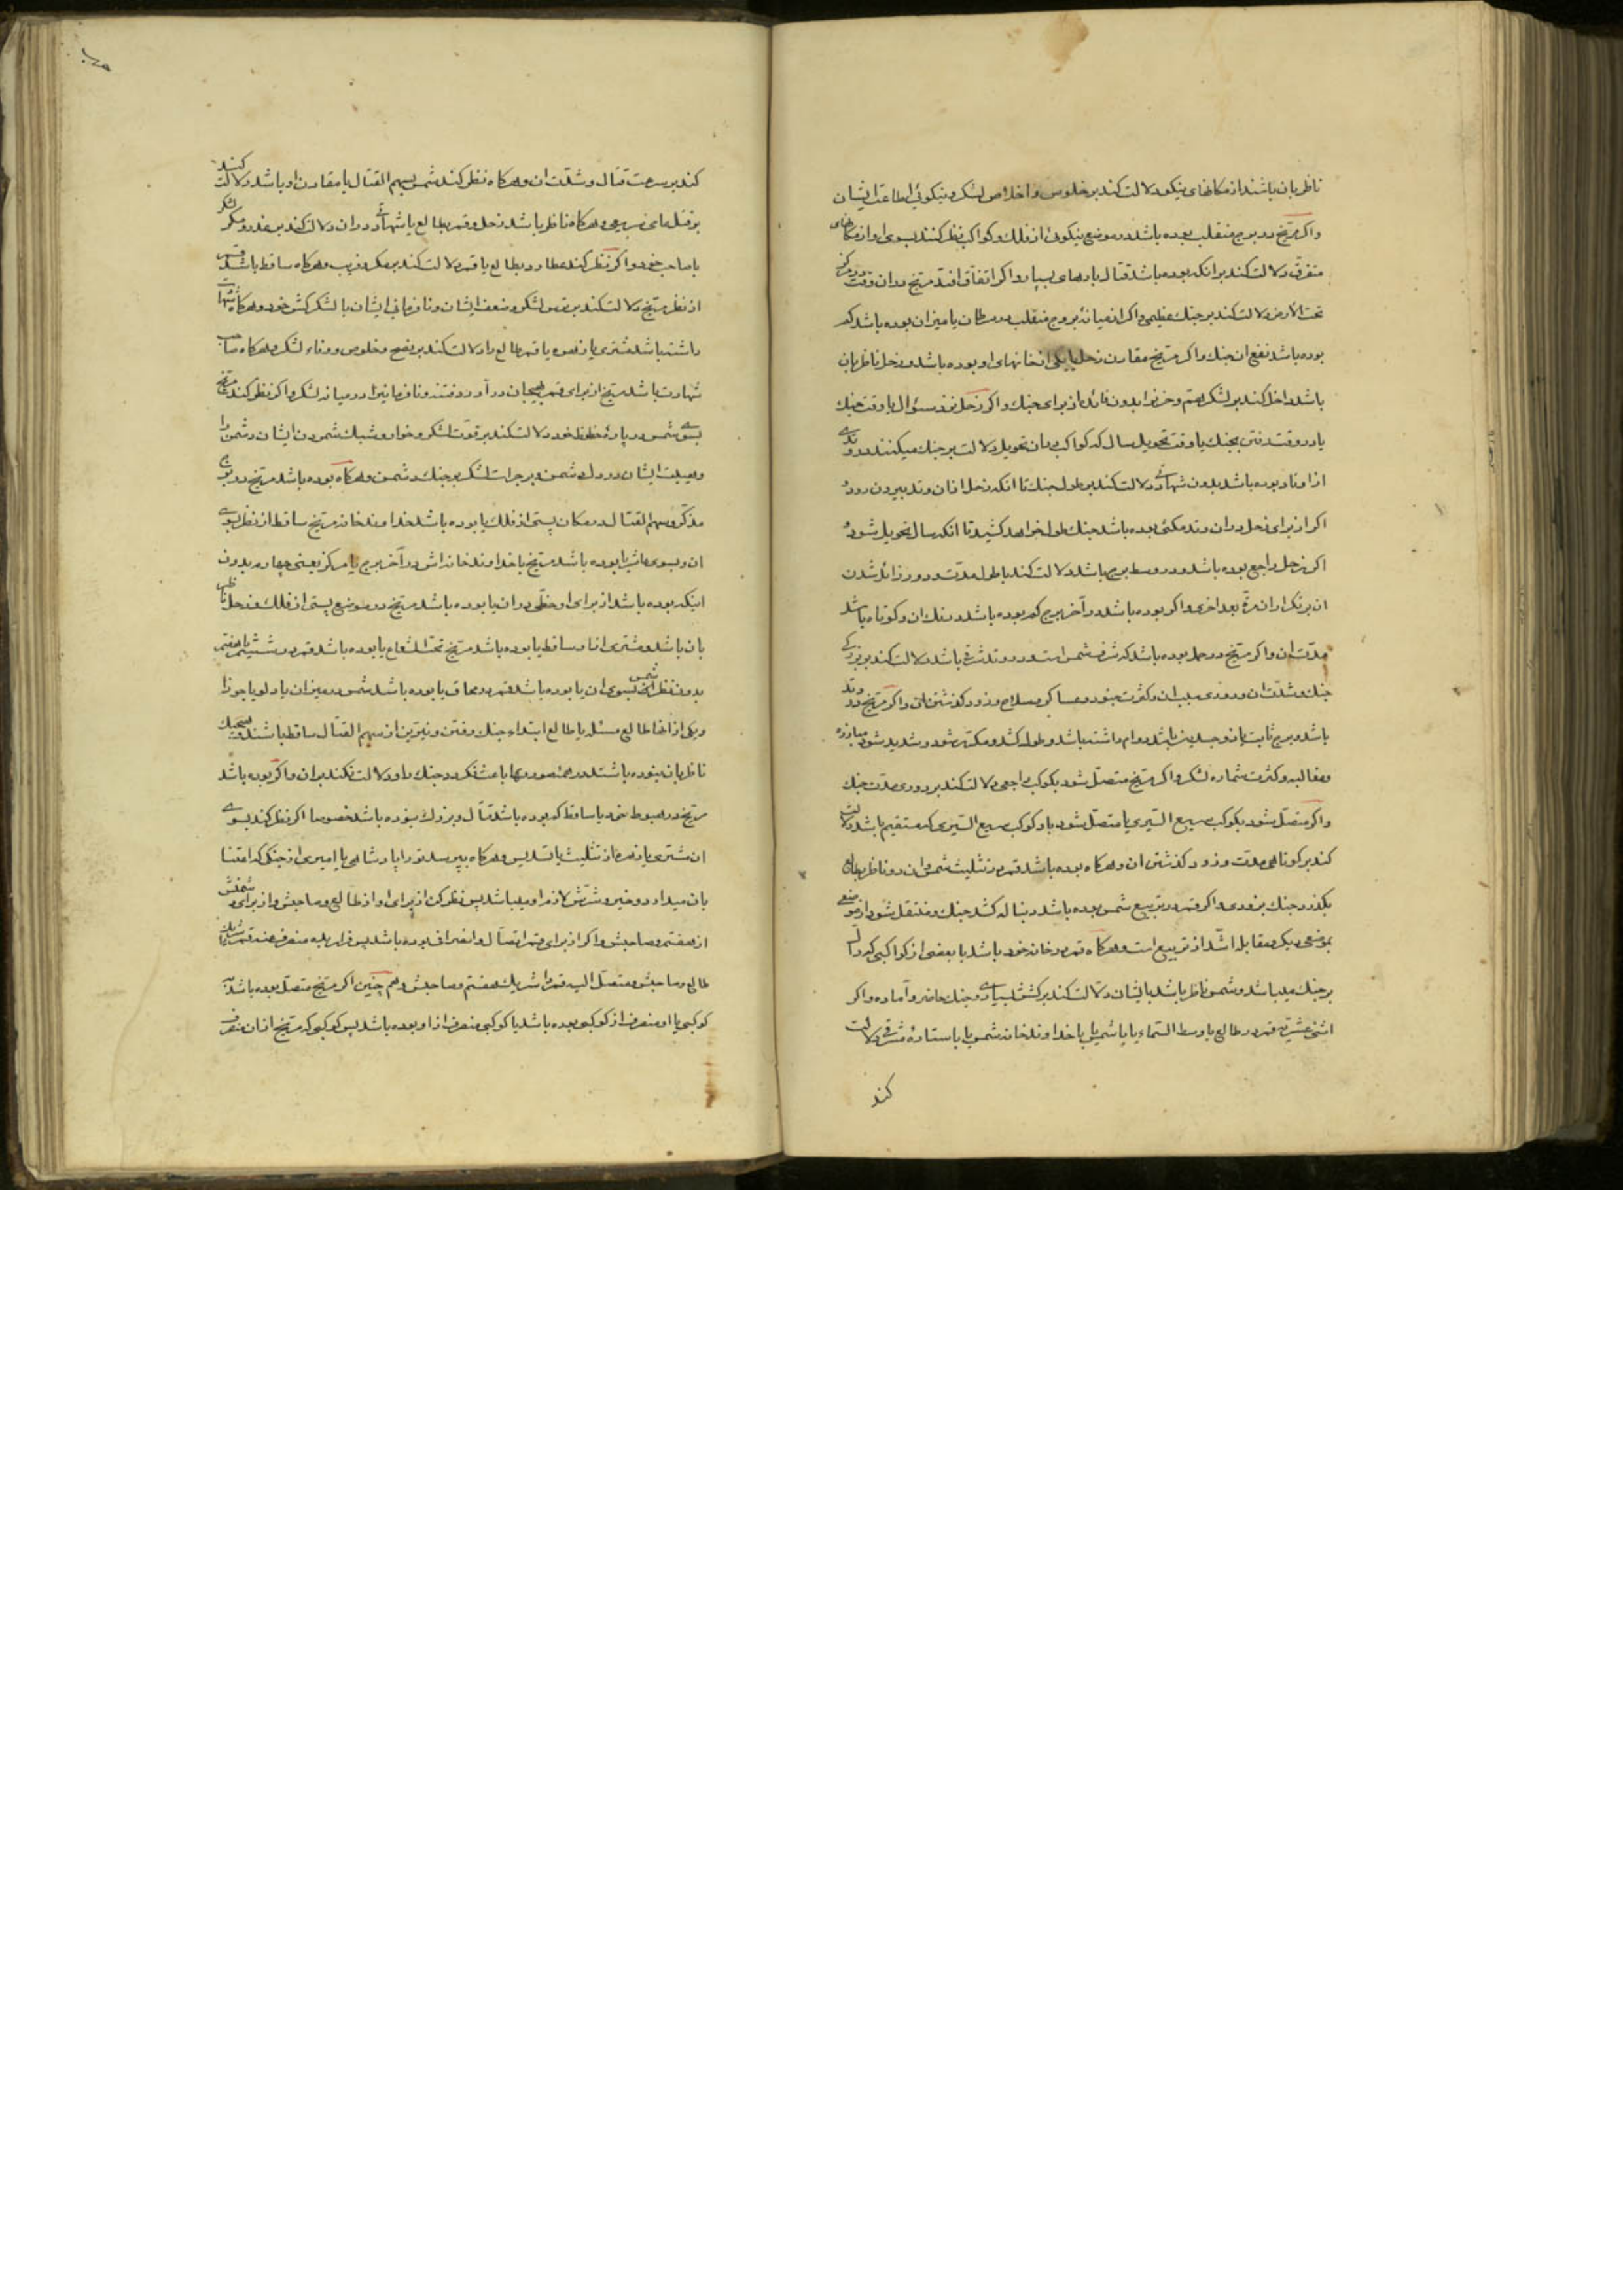 ناظر بان باشند از مکانهای نیکو دلالت کند بر خلوص و اخلاص لشکر و نیکوئی اطاعت ایشان
و اکر مریخ در برج منقلب بوده باشد در موضع نیکوئی از فلک و کواکب نظر کنند بسوی او از مکانهای
متفرق دلالت کند بر انکه بوده باشد قتال بارهای بسیار و اکر اتفاق افتد مریخ در ان وقت در مرکز
تحت الارض دلالت کند بر جنک عظیمی و اکر از میانهٔ بروج منقلب در سرطان یا میزان بوده باشد کم
بوده باشد نفع ان جنک و اکر مریخ مقارن زحل یا یکی از خانهای او بوده باشد و زحل ناظر بان
باشد داخل کند بر لشکر هم و حزن را بدون فائده از برای جنک و اکر زحل نزد سؤال یا وقت جنک
یا در وقت رفتن بجنک یا وقت تحویل سال که کواکب در ان تحویل دلالت بر جنک میکنند در وتدی
از اوتاد بوده باشد بدون شهادتی دلالت کند بر طول جنک تا انکه زحل از ان وتد بیرون رود و
اکر از برای زحل در ان وتد مکثی بوده باشد جنک طول خواهد کشید تا انکه سال تحویل شود و
اکر زحل راجع بوده باشد و در وسط برج باشد دلالت کند با طول مدت و دور زائل شدن
ان بر تکرار ان مرة بعد اخری و اکر بوده باشد در آخر برج کم بوده باشد درنک ان و کوتاه باشد
مدت ان و اکر مریخ در حمل بوده باشد که شرف شمس است و در وتد شرقی باشد دلالت کند بر بزرکی
جنک و شدت ان و دوری میدان و کثرت جنود و عساکر و سلاح و زود کذشتن ان و اکر مریخ در وتد
باشد و برج ثابت یا ذو جسدین باشد دوام داشته باشد و طول کشد و مکرر شود و شدید شود مبارزه
و مغالبه و کثرت شماره لشکر و اکر مریخ متصل شود بکوکب راجعی دلالت کند بر دوری مدت جنک
و اکر متصل شود بکوکب سریع السیری یا متصل شود باو کوکب سریع السیری که مستقیم باشد دلالت
کند بر کوتاهی مدت و زود کذشتن ان و هرکاه بوده باشد قمر در تثلیث شمس و ان دو ناظر بطالع
بکذرد جنک بزودی و اکر قمر در تربیع شمس بوده باشد دنباله کشد جنک و منتقل شود از موضعی
بموضعی دیکر و مقابله اشد از تربیع است و هرکاه قمر در خانه خود باشد با بعضی از کواکبی که دال
بر جنک میباشد و شمس ناظر باشد بایشان دلالت کند بر کشش بسیاری و جنک حاضر و آماده و اکر
اثنی عشریة قمر در طالع یا وسط السماء یا با شمس یا با خداوند خانه شمس یا با ستارهٔ مشرقی دلالت
کند
کند بر سرعت قتال و شدت ان و هرکاه نظر کند شمس بسهم القتال یا مقارن او باشد دلالت کند
بر فتلهای سریعی و هرکاه ناظر باشد زحل و قمر بطالع با شهادتی در ان دلالت کند بر غدر و مکر لشکر
با صاحب خود و اکر نظر کند عطارد بطالع یا قمر دلالت کند بر مکر و فریب و هرکاه ساقط باشد قمر
از نظر مریخ دلالت کند بر ترس لشکر و ضعف ایشان و نافرمانی ایشان با لشکرکش خود و هرکاه شهادت
داشته باشد مشتری یا زهره یا قمر طالع را دلالت کند بر نصح و خلوص و وفاء لشکر و هرکاه صاحب
شهادت باشد مریخ از برای قمر بهیجان درآورد فتنه و نافرمانیرا در میانه لشکر و اکر نظر کند مریخ
بسوی شمس در پارهٔ حظوظ خود دلالت کند بر قوت لشکر و خوار و سبک شمردن ایشان دشمن را
و هیبت ایشان در دل دشمن و بر جرات لشکر بر جنک دشمن و هرکاه بوده باشد مریخ در برج
مذکر و سهم القتال در مکان پستی از فلک یا بوده باشد خداوند خانه مریخ ساقط از نظر بسوی
ان و بسوی عاشر یا بوده باشد مریخ با خداوند خانه اش در آخر برج یا مرکز یعنی چهارم بدون
اینکه بوده باشد از برای او حظی در ان یا بوده باشد مریخ در موضع پستی از فلک و زحل ناظر
بان باشد و مشتری از او ساقط یا بوده باشد مریخ تحت الشعاع یا بوده باشد قمر در ششم یا هفتم
بدون نظر شمس بسوی ان یا بوده باشد قمر در محاق یا بوده باشد شمس در میزان یا دلو یا جوزا
و یکی از انها طالع مسئله یا طالع ابتداء جنک رفتن و نیرین از سهم القتال ساقط باشند و هیچیک
ناظر بان نبوده باشند در همه صورتها باعث فکر در جنک باو دلالت نکند بر ان و اکر بوده باشد
مریخ در هبوط خود یا ساقط کم بوده باشد قتال و بزرک نبوده باشد خصوصا اکر نظر کند بسوی
ان مشتری یا زهره از تثلیث یا تسدیس و هرکاه بپرسد تو را پادشاهی یا امیری از جنکی که اعتنا
بان میدارد و خیر و شرش لازم او میباشد پس نظر کن از برای او از طالع و صاحبش و از برای دشمنش
از هفتم و صاحبش و اکر از برای قمر اتصال و انصرافی بوده باشد پس قرار بده منصرف عنه قمر را شریک
طالع و صاحبش و متصل الیه قمر را شریک هفتم و صاحبش و هم چنین اکر مریخ متصل بوده باشد به
کوکبی یا او منصرف از کوکبی بوده باشد یا کوکبی منصرف از او بوده باشد پس کوکبی که مریخ از ان منصرف